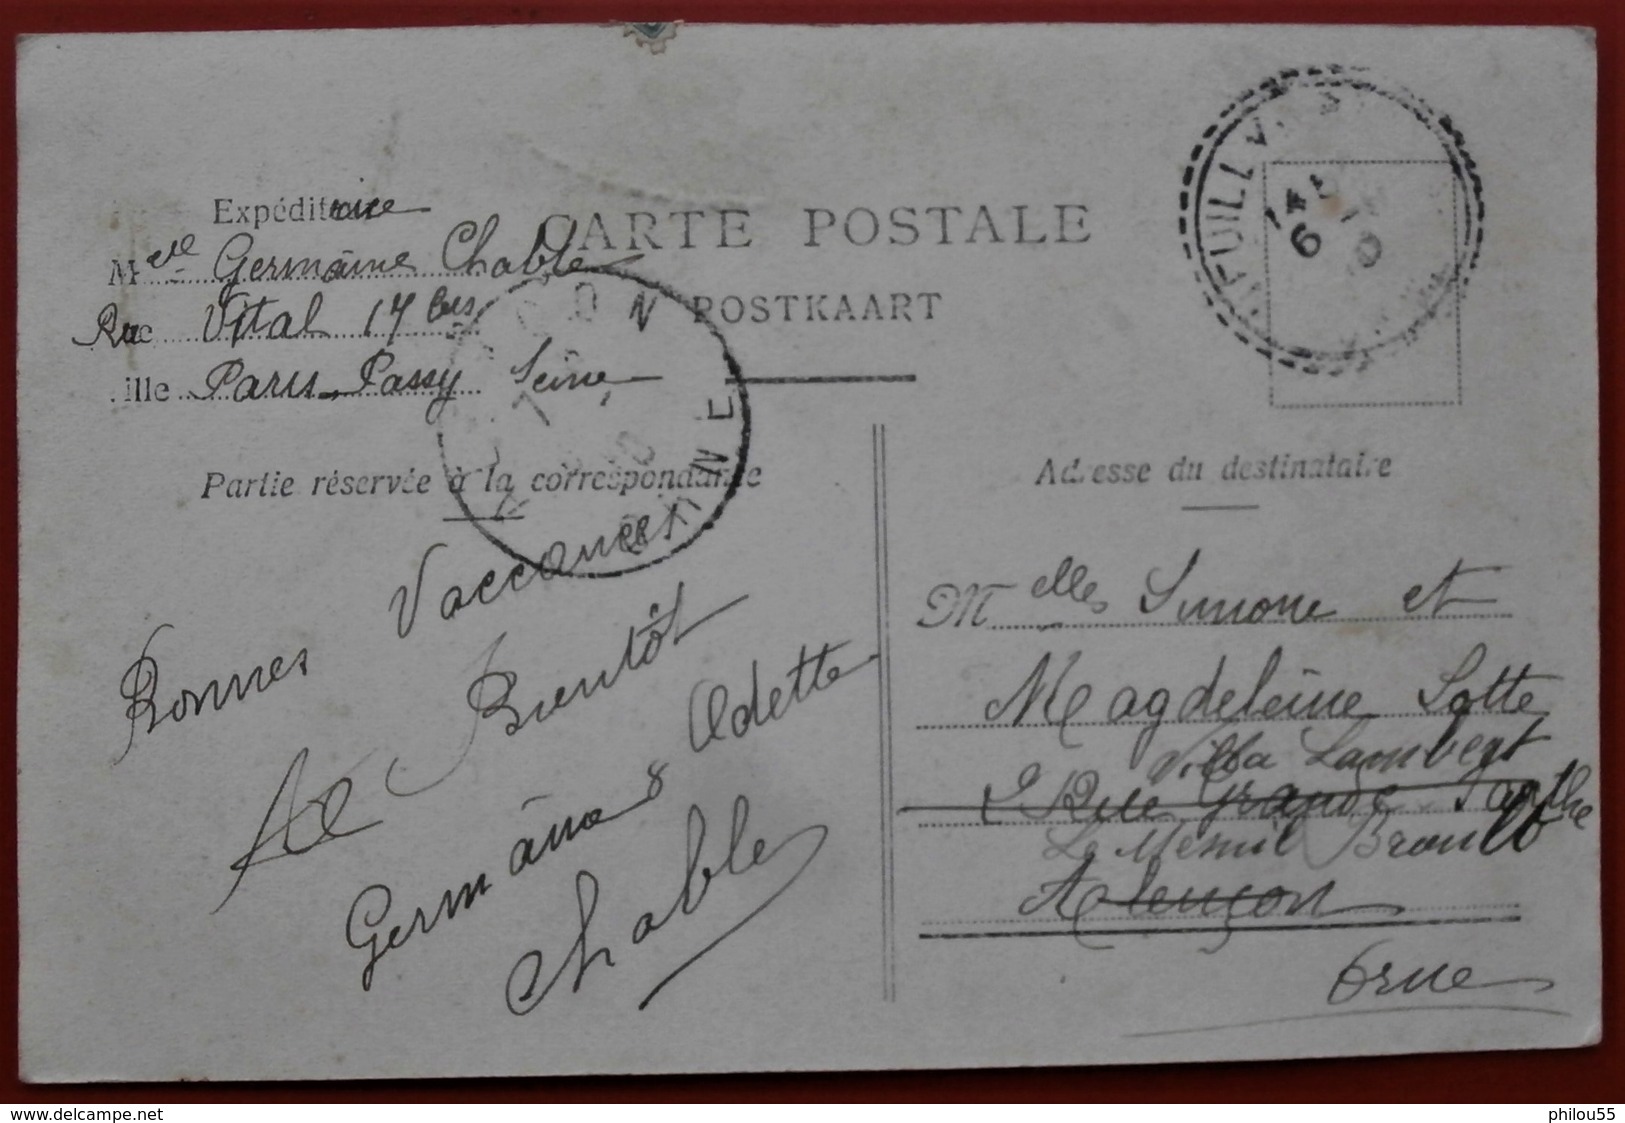 Expéditrice
CARTE POSTALE
Melle Germaine Chable
POSTKAART
Rue Vital 17 bis
ille Paris-Passy Seine
Partie réservée à la correspondance
Bonnes Vaccances
A Bientôt
Germaine & Odette
Chable
Adresse du destinataire
Melles Simone et
Magdeleine Sotte
Villa Lambert
2 Rue Grande Sarthe
Le Mesnil Broult
Alençon
Orne
www.delcampe.net
philou55